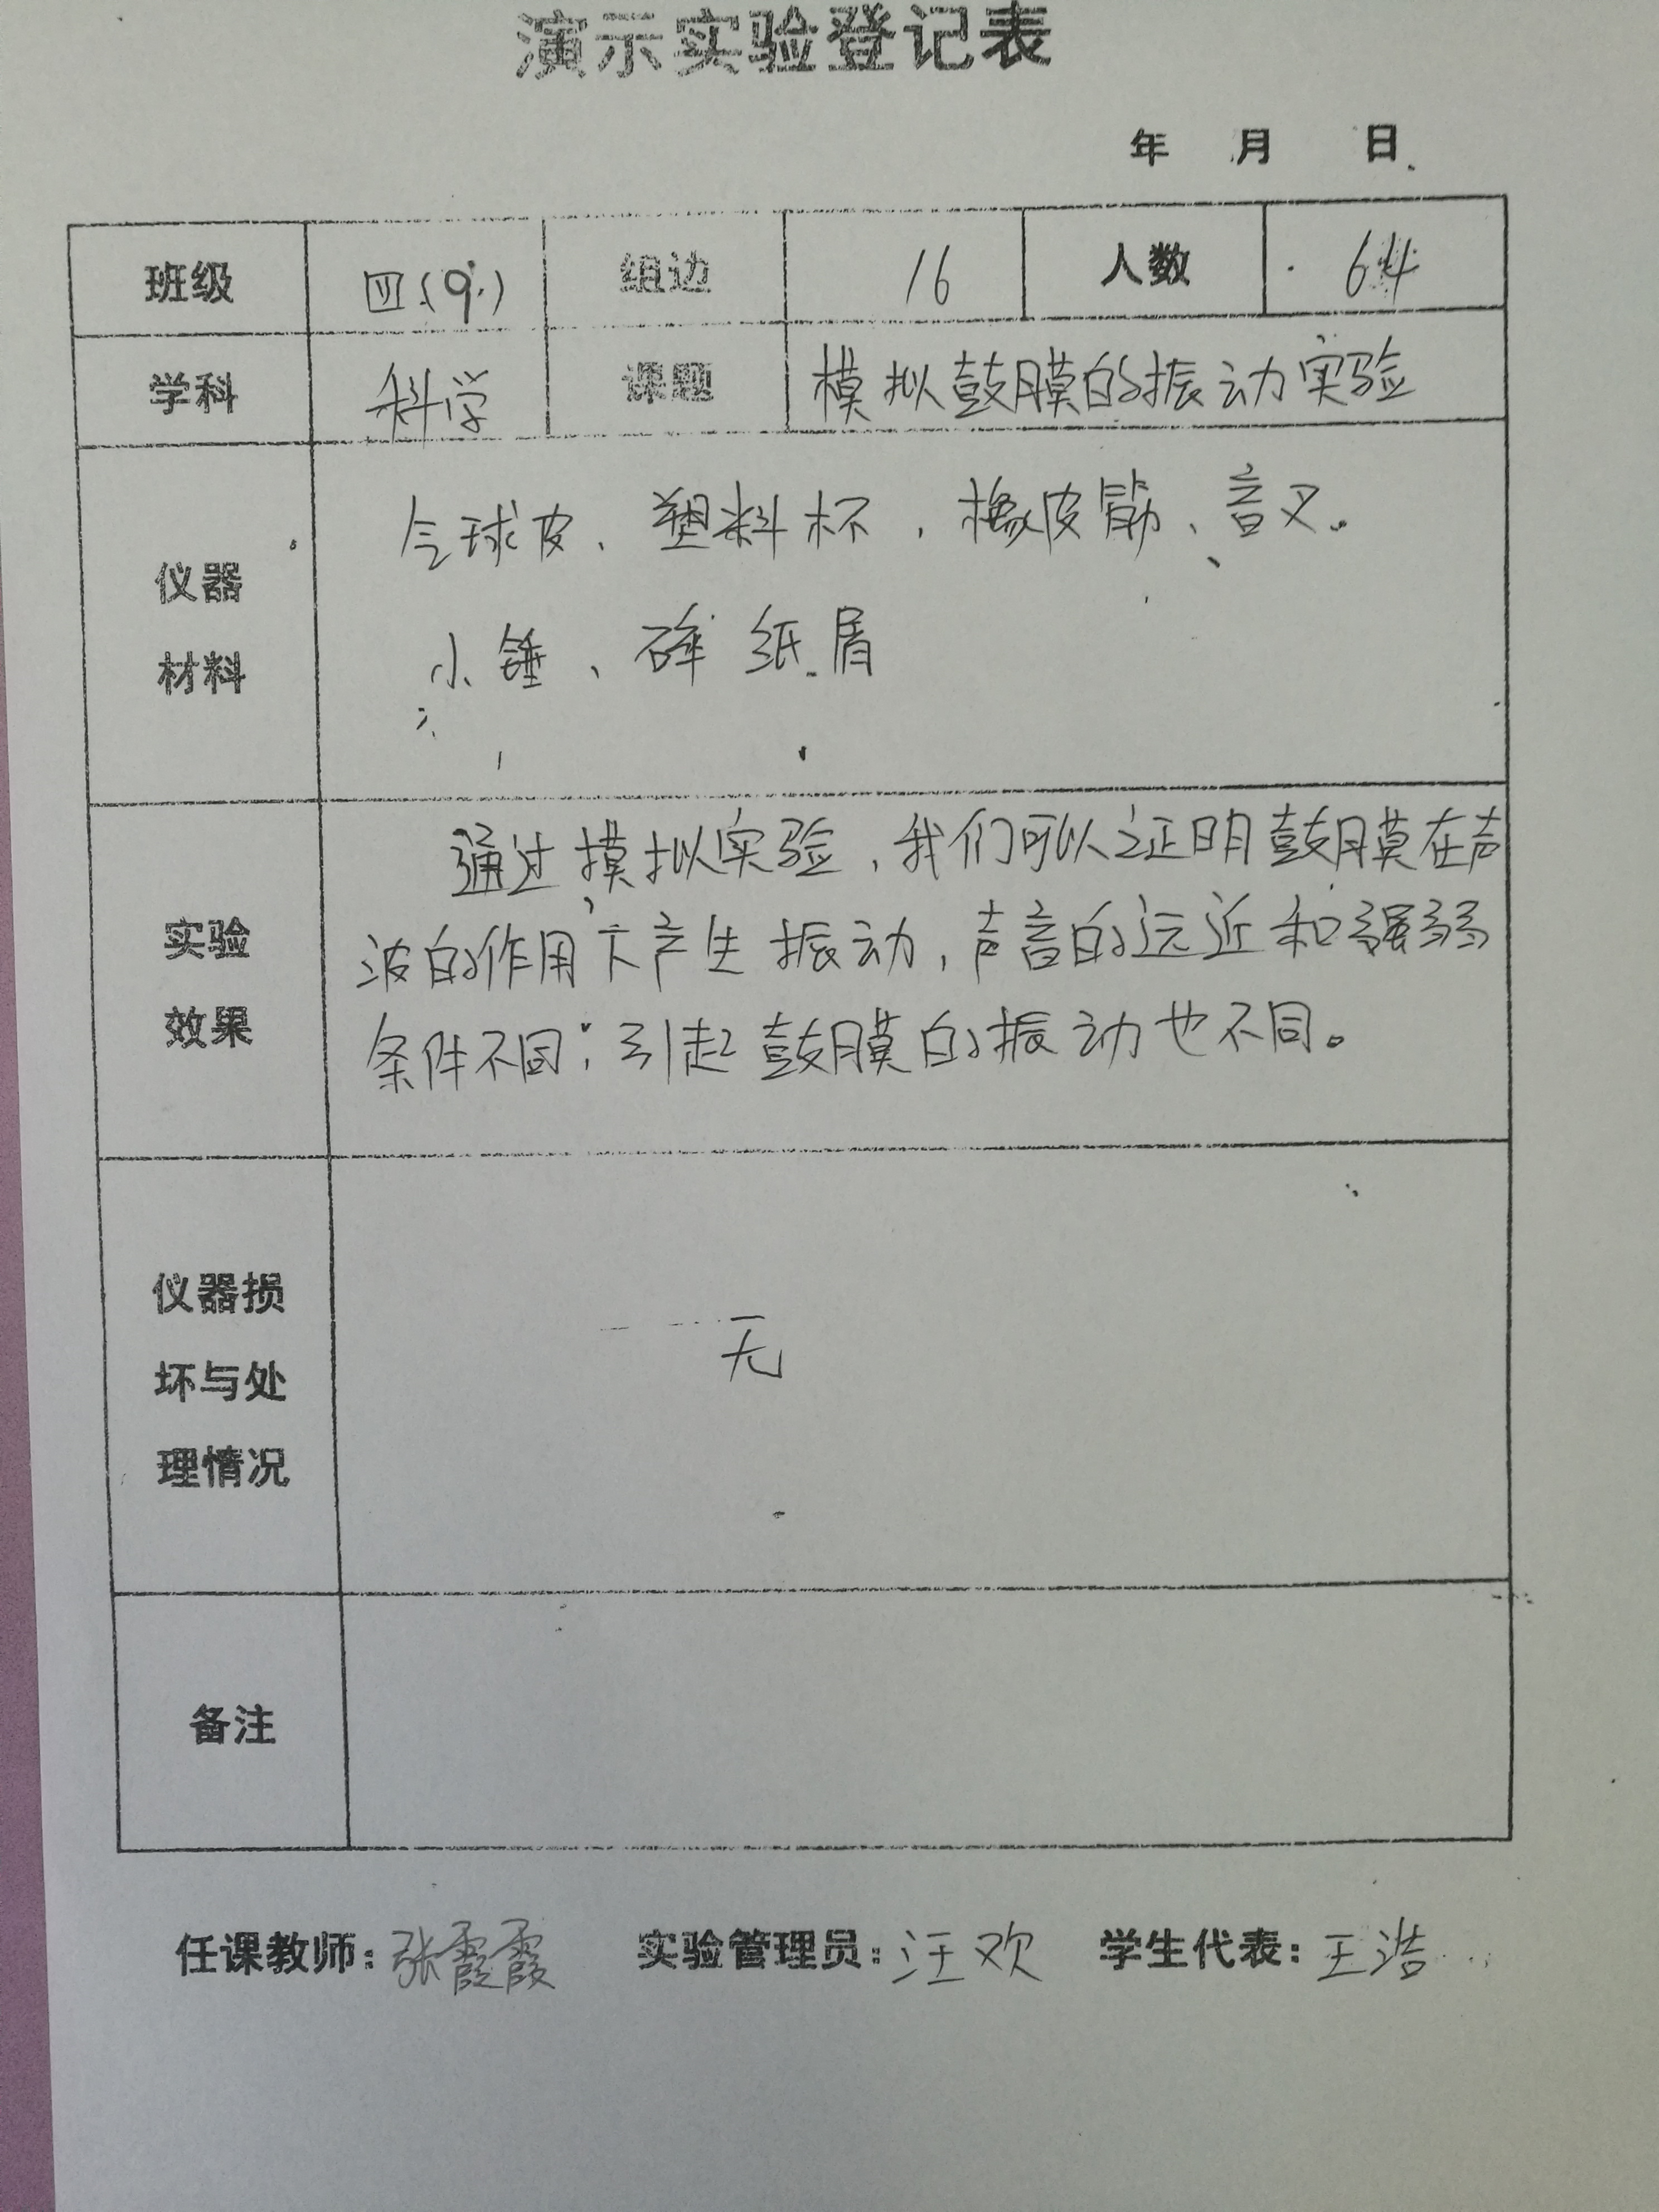 演示实验登记表
年 月 日
班级 四(9) 组边 16 人数 64
学科 科学 课题 模拟鼓膜的振动实验
仪器
材料
气球皮、塑料杯、橡皮筋、音叉。
小锤、碎纸屑
实验
效果
通过模拟实验,我们可以证明鼓膜在声
波的作用下产生振动,声音的远近和强弱
条件不同;引起鼓膜的振动也不同。
仪器损
坏与处
理情况
无
备注
任课教师:张霞霞 实验管理员:汪欢 学生代表:王浩